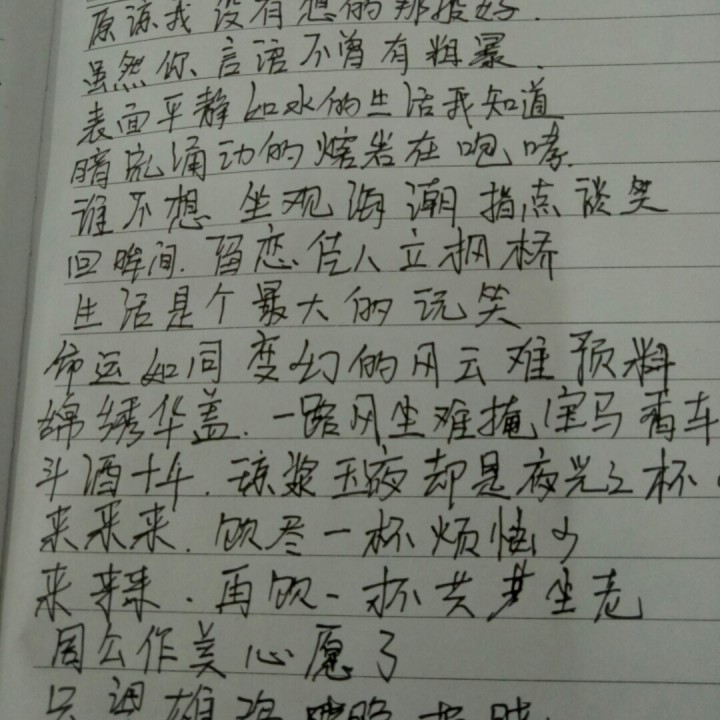 原谅我没有想的那般好.
虽然你言语不曾有粗暴.
表面平静如水的生活我知道
暗流涌动的熔岩在咆哮.
谁不想坐观海潮指点谈笑
回眸间.留恋佳人立枫桥
生活是个最大的玩笑
命运如同变幻的风云难预料
锦绣华盖.一路风尘难掩宝马香车
斗酒十年.琼浆玉液却是夜光之杯.
来来来.饮尽一杯烦恼少
来来来.再饮一杯共梦坐老
周公作美心愿了
只调雄鸡